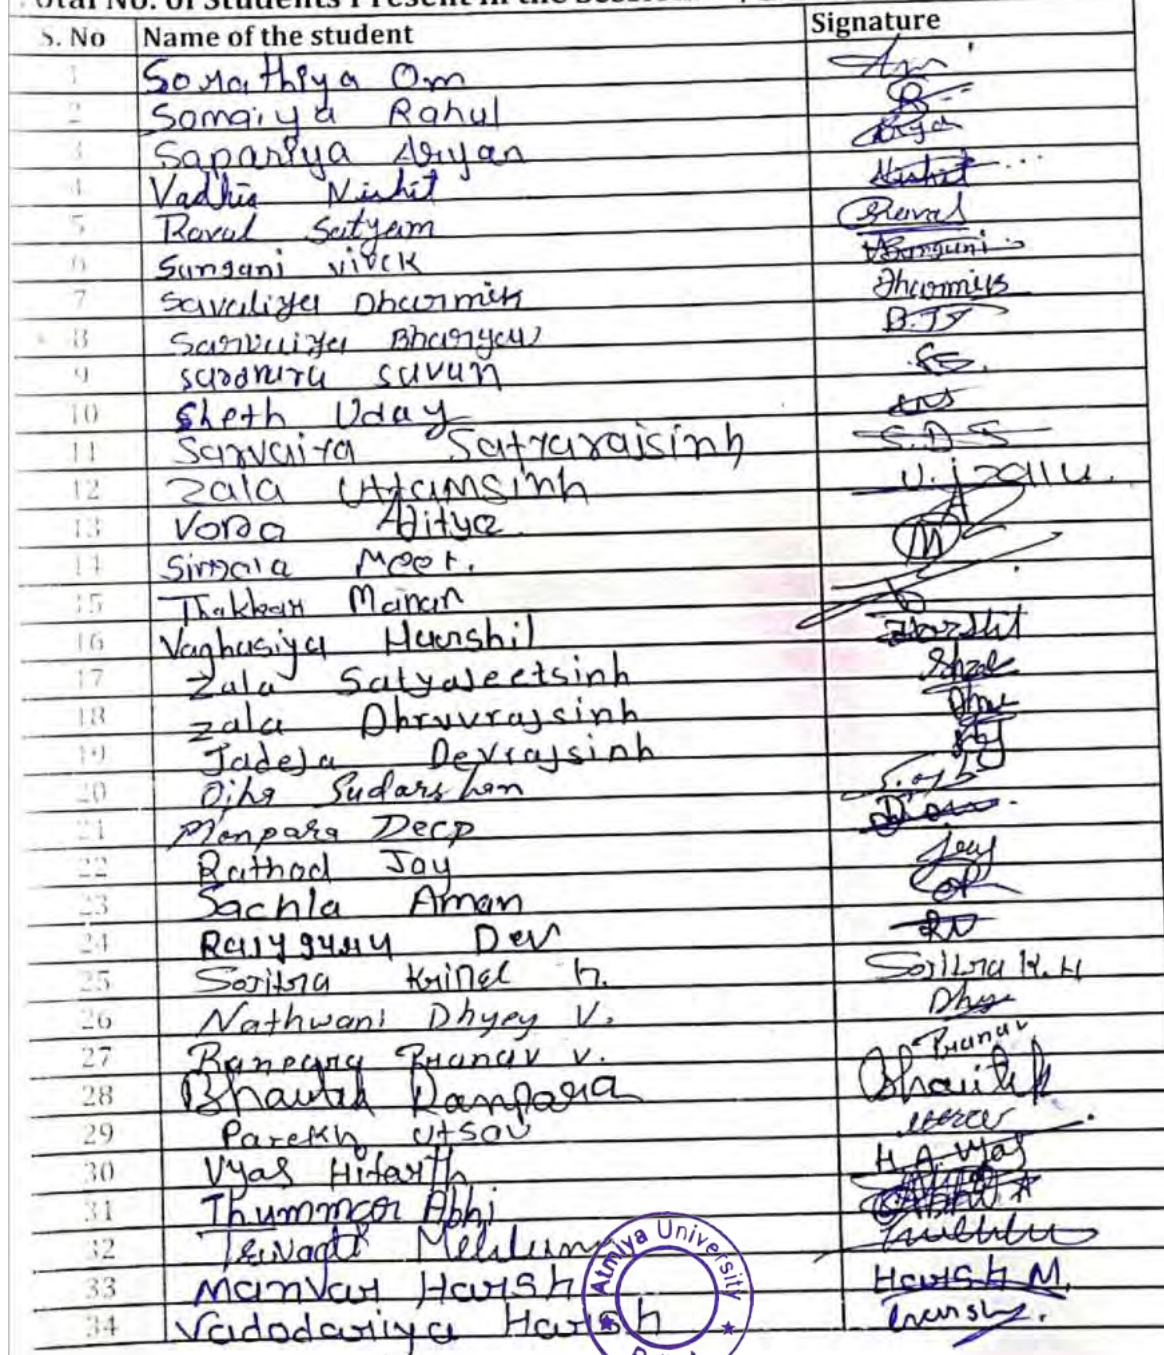 Total No. of Students Present in the Session
S. No Name of the student Signature
1 Sorathiya Om
2 Somaiya Rahul
3 Sapariya Aryan
4 Vadhia Nishit Nishit
5 Raval Satyam Raval
6 Sungani vivek
7 Savaliya Dharmik Dharmik
8 Sarvaiya Bhargav
9 savan
10 Sheth Uday
11 Sarvaiya Satyarajsinh S.D.S
12 Zala Uttamsinh
13 Vora Aditya
14 Meet. M
15 Thakkar Manan
16 Vaghasiya Harshil Harshil
17 Zala Satyajeetsinh
18 zala Dhruvrajsinh
19 Jadeja Devrajsinh
20 Ojha Sudarshan
21 Monpara Deep
22 Rathod Jay Jay
23 Sachla Aman
24 Rajyguru Dev
25 Soritra Krinal h. Soritra K.H
26 Nathwani Dhyey V.
27 Ranpara Pranav v. Pranav
28 Bhautik Ranparia Bhautik
29 Parekh Utsav
30 Vyas Hitarth H.A. Vyas
31 Thummar Abhi
32 Trivadi
33 Manvar Harsh Harsh M.
34 Vadodariya Harsh
Atmiya University